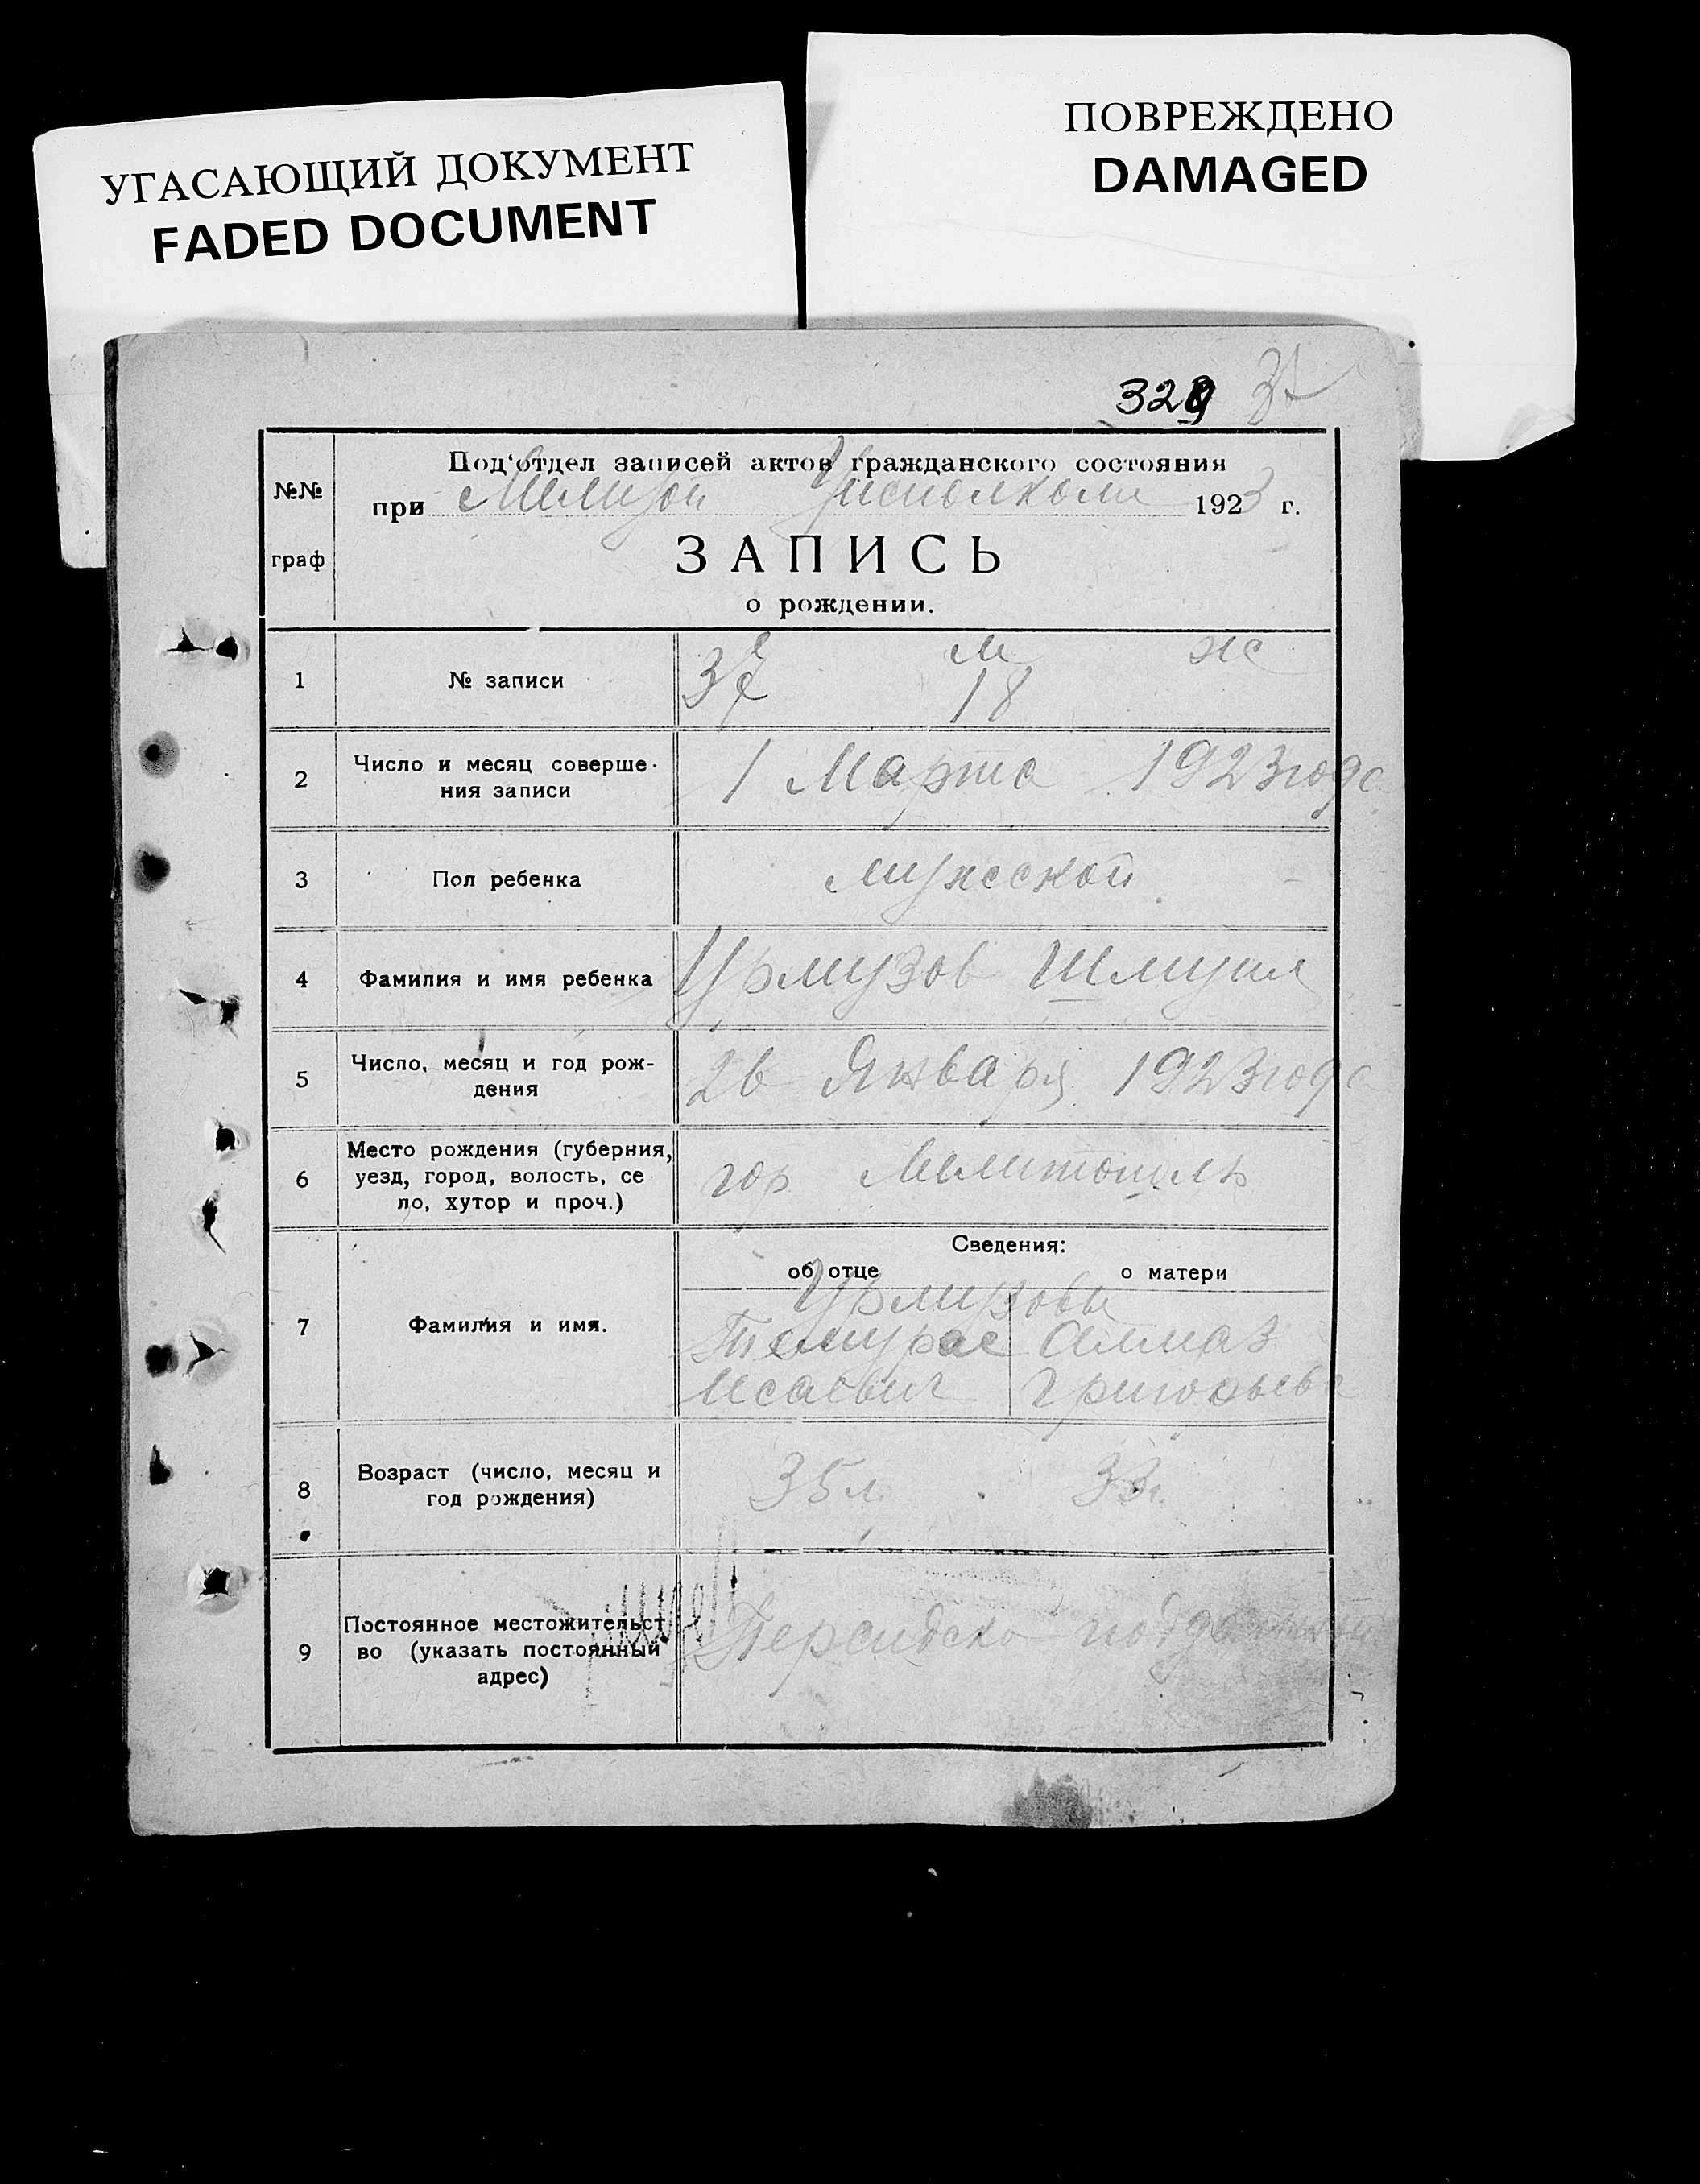 УГАСАЮЩИЙ ДОКУМЕНТ
FADED DOCUMENT
ПОВРЕЖДЕНО
DAMAGED
329 37
Под‘отдел записей актов гражданского состояния
№№
при Уисполкоме 1923 г.
граф
ЗАПИСЬ
о рождении.
м ж
1 № записи 37 18
2 Число и месяц соверше-
ния записи
1 Марта 1923 года
3 Пол ребенка мужской
4 Фамилия и имя ребенка Урмузов Шмуил
5 Число, месяц и год рож-
дения
26 Января 1923 года
6 Место рождения (губерния,
уезд, город, волость, се
ло, хутор и проч.)
гор Мелитополь
Сведения:
об отце о матери
Урмузовы
7 Фамилия и имя.
Темурас Алмаз
Исаевич Григорьева
8 Возраст (число, месяц и
год рождения)
35 л. 33 г.
9 Постоянное местожительст
во (указать постоянный
адрес)
Персидско